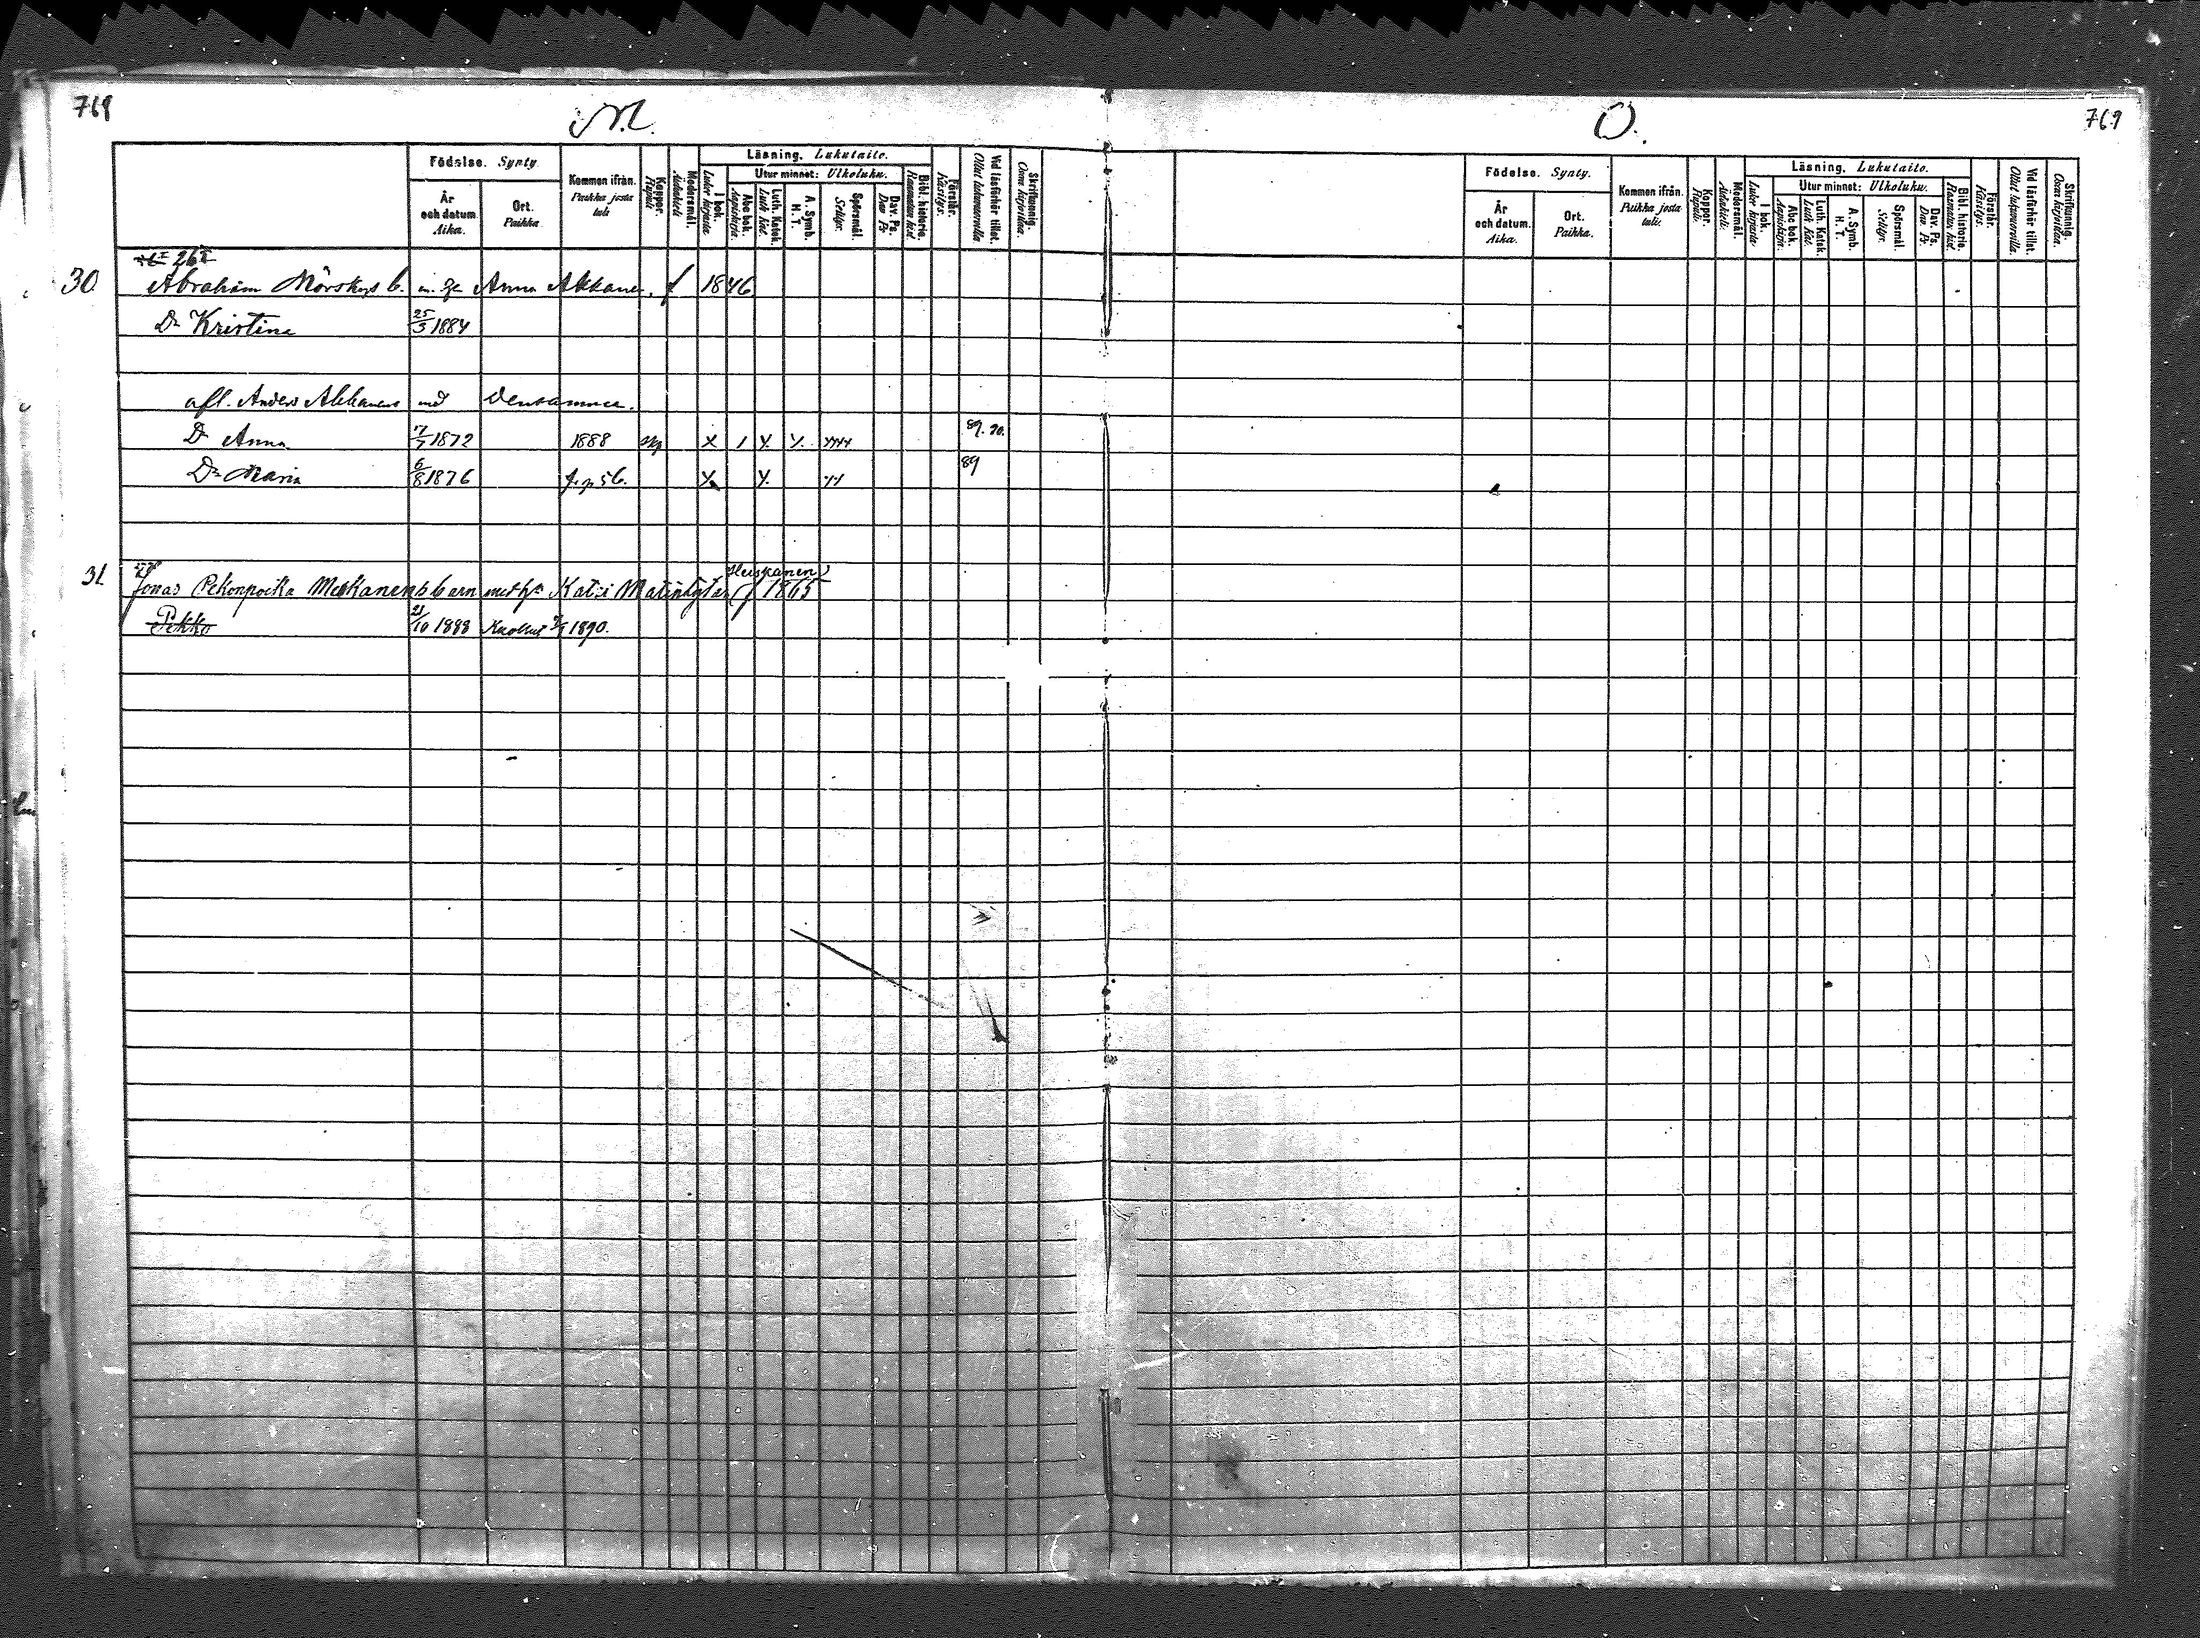 769
M.
Födelse. Synty.
År och datum. Aika.
Ort. Paikka.
Kommen ifrån. Paikka josta tuli.
Koppor. Rupuli.
Modersmål. Äidinkieli.
Läsning. Lukutaito.
I bok. Lukee kirjasta.
Utur minnet: Ulkoluku.
Abc bok. Aapiskirja.
Luth. Katek. Luth. Kat.
A. Symb. H. T.
Spörsmål. Selitys.
Dav. Ps. Dav. Ps.
Bibl. historia. Raamatun hist.
Förstår. Käsitys.
Vid läsförhör tillst. Ollut lukuseuroilla.
Skrifkunnig. Osaa kirjoittaa.
26
30 Abraham Mörskys b. m. Anna Akkanen. f 1846
Dr Kristina 25/3 1884
afl. Anders Akkanens med Densamma.
Dr Anna 7/7 1872 1888 x 1 x x 89. 90.
Dr Maria 6/8 1876 f. p 56. x x 89
31 Heiskanen
Jonas Pekonpoika Meskanens barn med h. Katri Matintytär f 1865
Pekko 21/10 1888 Kuollut 1890.
O.
769
Födelse. Synty.
År och datum. Aika.
Ort. Paikka.
Kommen ifrån. Paikka josta tuli.
Koppor. Rupuli.
Modersmål. Äidinkieli.
Läsning. Lukutaito.
I bok. Lukee kirjasta.
Utur minnet: Ulkoluku.
Abc bok. Aapiskirja.
Luth. Katek. Luth. Kat.
A. Symb. H. T.
Spörsmål. Selitys.
Dav. Ps. Dav. Ps.
Bibl. historia. Raamatun hist.
Förstår. Käsitys.
Vid läsförhör tillst. Ollut lukuseuroilla.
Skrifkunnig. Osaa kirjoittaa.